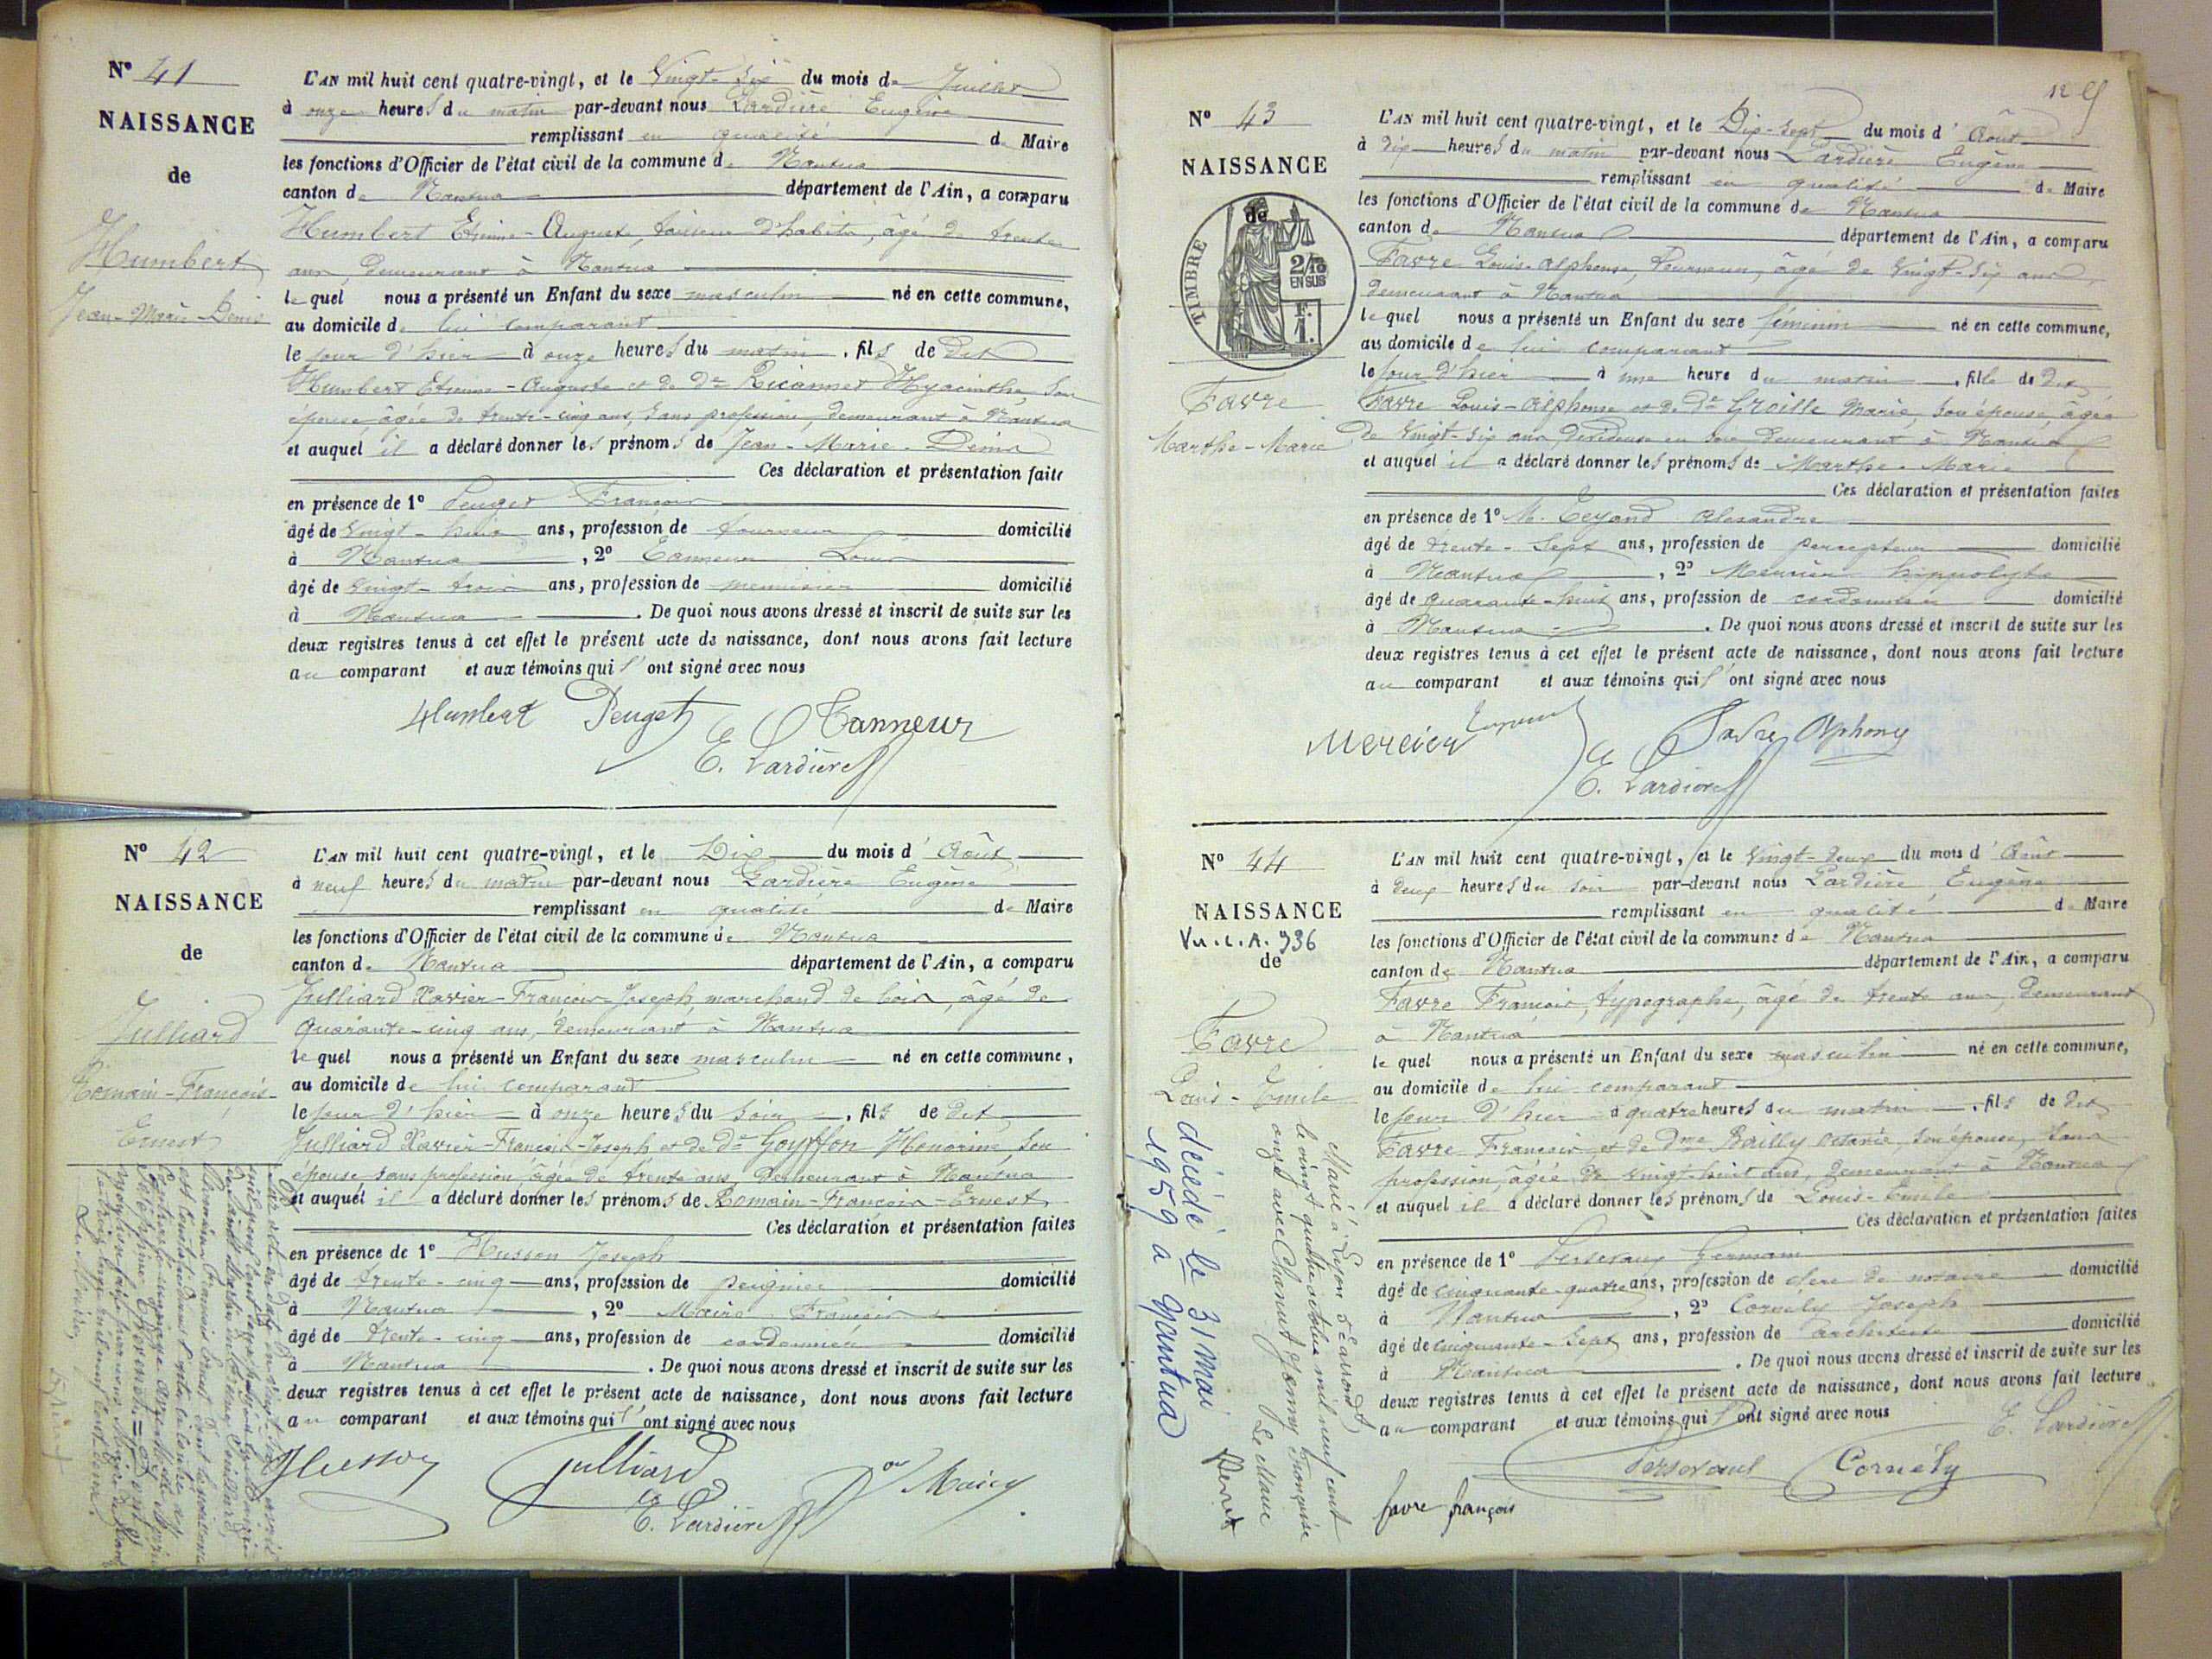 Nº 41
NAISSANCE
de
Humbert
Jean-Marie-Denis
L'AN mil huit cent quatre-vingt, et le Vingt-six du mois de Juillet
à onze heures du matin par-devant nous Lardière Eugène
remplissant en qualité de Maire
les fonctions d'Officier de l'état civil de la commune de Nantua
canton de Nantua département de l'Ain, a comparu
Humbert Etienne-Auguste, tailleur d'habits, âgé de trente
ans, demeurant à Nantua
lequel nous a présenté un Enfant du sexe masculin né en cette commune,
au domicile de lui comparant
le jour d'hier à onze heures du matin, fils de dit
Humbert Etienne-Auguste et de De Hyacinthe, son
épouse, âgée de trente-cinq ans, sans profession, demeurant à Nantua
et auquel il a déclaré donner les prénoms de Jean-Marie-Denis
Ces déclaration et présentation faites
en présence de 1º Peuget François
âgé de vingt-huit ans, profession de tourneur domicilié
à Nantua, 2º Tanneur Louis
âgé de vingt-trois ans, profession de menuisier domicilié
à Nantua. De quoi nous avons dressé et inscrit de suite sur les
deux registres tenus à cet effet le présent acte de naissance, dont nous avons fait lecture
au comparant et aux témoins qui l'ont signé avec nous
Humbert Peuget Tanneur
E. Lardière
Nº 42
NAISSANCE
de
Julliard
Romain-François-
Ernest
L'AN mil huit cent quatre-vingt, et le Dix du mois d'Août
à neuf heures du matin par-devant nous Lardière Eugène
remplissant en qualité de Maire
les fonctions d'Officier de l'état civil de la commune de Nantua
canton de Nantua département de l'Ain, a comparu
Julliard Xavier-François-Joseph, marchand de bois, âgé de
quarante-cinq ans, demeurant à Nantua
lequel nous a présenté un Enfant du sexe masculin né en cette commune,
au domicile de lui comparant
le jour d'hier à onze heures du soir, fils de dit
Julliard Xavier-François-Joseph et de De Goyffon Honorine, son
épouse, sans profession, âgée de trente ans, demeurant à Nantua
et auquel il a déclaré donner les prénoms de Romain-François-Ernest
Ces déclaration et présentation faites
en présence de 1º Husson Joseph
âgé de trente-cinq ans, profession de peignier domicilié
à Nantua, 2º Maire François
âgé de trente-cinq ans, profession de cordonnier domicilié
à Nantua. De quoi nous avons dressé et inscrit de suite sur les
deux registres tenus à cet effet le présent acte de naissance, dont nous avons fait lecture
au comparant et aux témoins qui l'ont signé avec nous
Husson Julliard Maire
E. Lardière
Le Maire,
12
Nº 43
NAISSANCE
de
TIMBRE
2/10
EN SUS
F.
1.
Favre
Marthe-Marie
L'AN mil huit cent quatre-vingt, et le Dix-sept du mois d'Août
à dix heures du matin par-devant nous Lardière Eugène
remplissant en qualité de Maire
les fonctions d'Officier de l'état civil de la commune de Nantua
canton de Nantua département de l'Ain, a comparu
Favre Louis-Alphonse, tourneur, âgé de vingt-six ans,
demeurant à Nantua
lequel nous a présenté un Enfant du sexe féminin né en cette commune,
au domicile de lui comparant
le jour d'hier à une heure du matin, fille de dit
Favre Louis-Alphonse et de De Groille Marie, son épouse, âgée
de vingt-six ans, dévideuse en soie demeurant à Nantua
et auquel il a déclaré donner les prénoms de Marthe-Marie
Ces déclaration et présentation faites
en présence de 1º M. Alexandre
âgé de trente-sept ans, profession de percepteur domicilié
à Nantua, 2º Mercier hippolyte
âgé de quarante-huit ans, profession de cordonnier domicilié
à Nantua. De quoi nous avons dressé et inscrit de suite sur les
deux registres tenus à cet effet le présent acte de naissance, dont nous avons fait lecture
au comparant et aux témoins qui l'ont signé avec nous
Mercier Favre Alphonse
E. Lardière
Nº 44
NAISSANCE
Vu. L. A. 936
de
Favre
Louis-Emile
Marié à Lyon 5e arrondt
le vingt quatre octobre mil neuf cent
onze avec Chanut Jenny Françoise
Le Maire
décédé le 31 Mai
1959 à Nantua
L'AN mil huit cent quatre-vingt, et le Vingt-deux du mois d'Août
à deux heures du soir par-devant nous Lardière Eugène
remplissant en qualité de Maire
les fonctions d'Officier de l'état civil de la commune de Nantua
canton de Nantua département de l'Ain, a comparu
Favre François, typographe, âgé de trente ans, demeurant
à Nantua
lequel nous a présenté un Enfant du sexe masculin né en cette commune,
au domicile de lui comparant
le jour d'hier à quatre heures du matin, fils de dit
Favre François et de Dme Bailly Octavie, son épouse, sans
profession, âgée de vingt-huit ans, demeurant à Nantua
et auquel il a déclaré donner les prénoms de Louis-Emile
Ces déclaration et présentation faites
en présence de 1º Germain
âgé de cinquante-quatre ans, profession de clerc de notaire domicilié
à Nantua, 2º Cornély Joseph
âgé de cinquante-sept ans, profession de architecte domicilié
à Nantua. De quoi nous avons dressé et inscrit de suite sur les
deux registres tenus à cet effet le présent acte de naissance, dont nous avons fait lecture
au comparant et aux témoins qui l'ont signé avec nous
E. Lardière
Cornély
favre françois